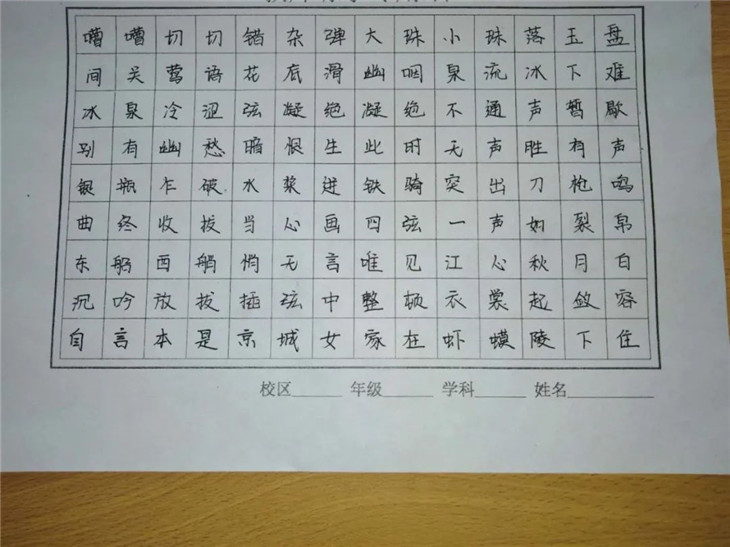 嘈嘈切切错杂弹大珠小珠落玉盘
间关莺语花底滑幽咽泉流冰下难
冰泉冷涩弦凝绝凝绝不通声暂歇
别有幽愁暗恨生此时无声胜有声
银瓶乍破水浆迸铁骑突出刀枪鸣
曲终收拔当心画四弦一声如裂帛
东船西舫悄无言唯见江心秋月白
沉吟放拔插弦中整顿衣裳起敛容
自言本是京城女家在虾蟆陵下住
校区______ 年级______ 学科______ 姓名__________